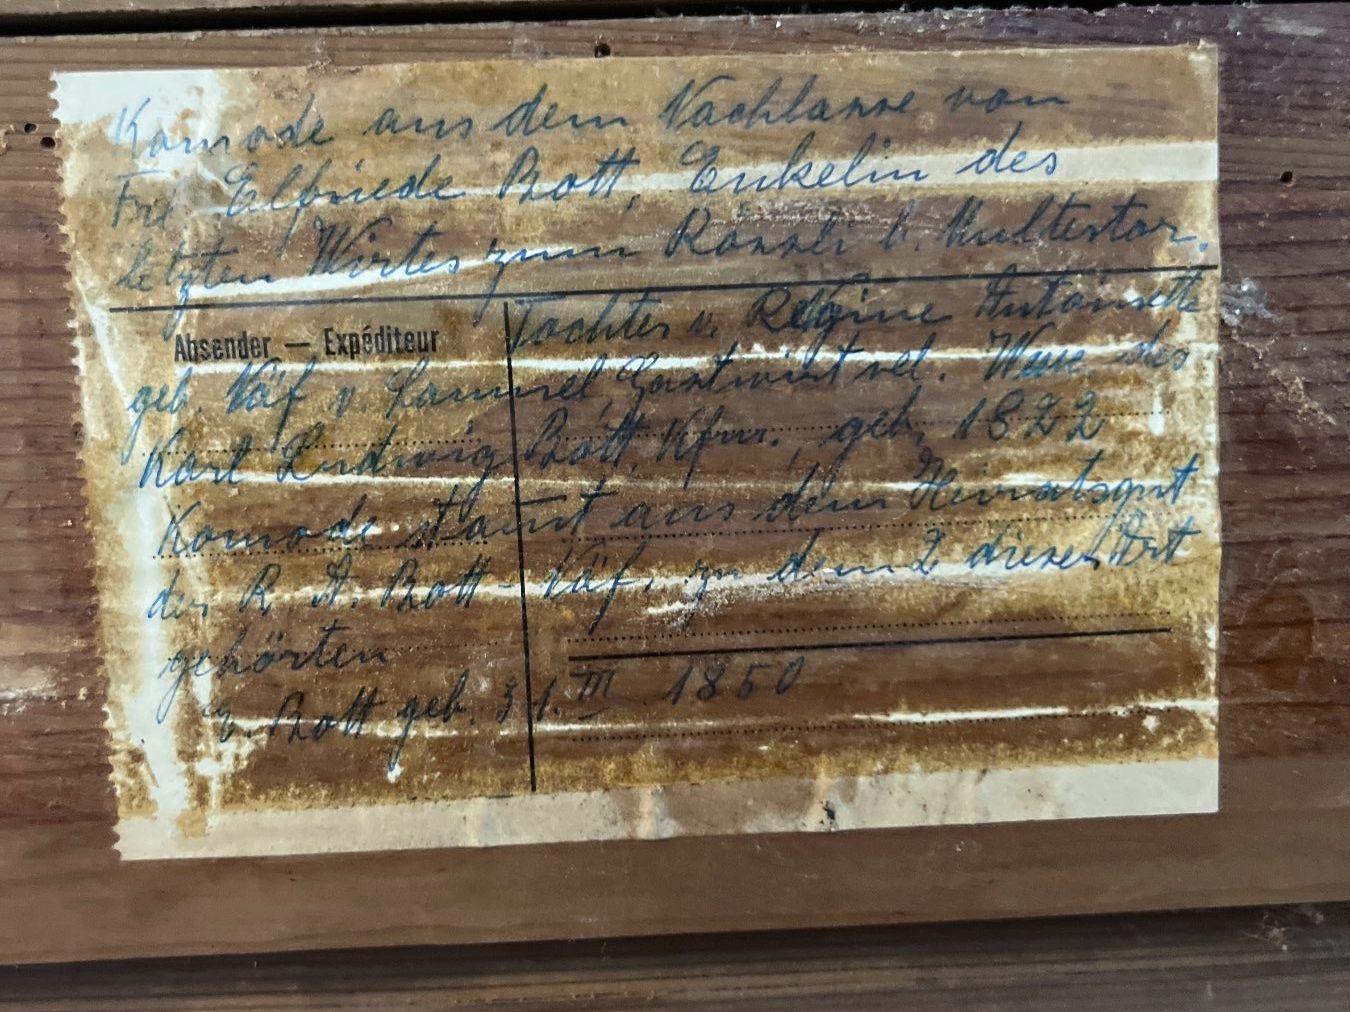 Komode aus dem Nachlasse von
Frl. Elfriede Bott, Enkelin des
letzten Wirtes zum Rössli b. Multertor.
Tochter v. Regine Antoinette
Absender — Expéditeur
geb. Näf v. Samuel, Gastwirt sel. Wwe. des
Karl Ludwig Bott, Kfm., geb. 1822
Komode stamt aus dem Heiratsgut
der R. A. Bott-Näf, zu dem 2 dieser Art
gehörten
E. Bott geb. 31. III 1850